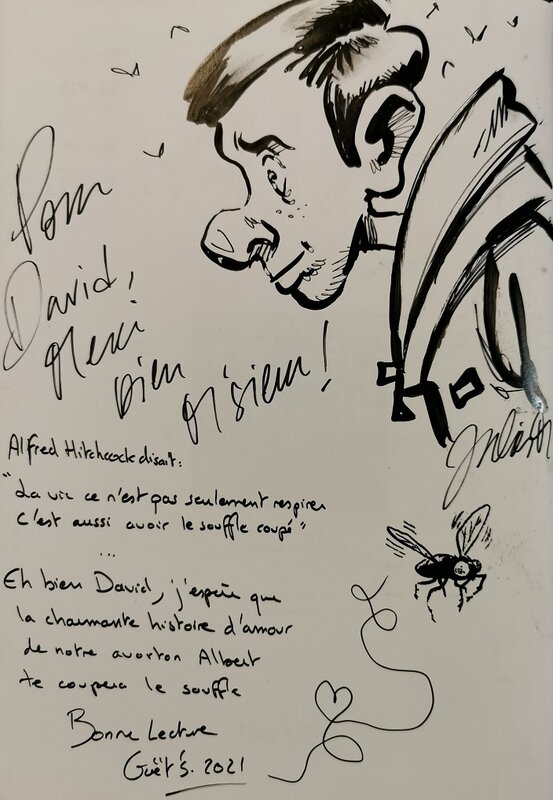 Pour
David,
Merci
bien
M'sieur !
Alfred Hitchcock disait :
"La vie ce n'est pas seulement respirer
c'est aussi avoir le souffle coupé"
...
Eh bien David, j'espère que
la charmante histoire d'amour
de notre avorton Albert
te coupera le souffle
Bonne Lecture
Guët's. 2021